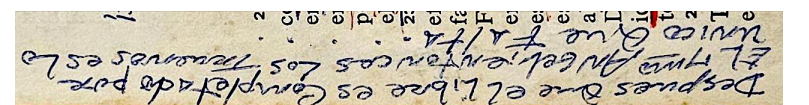 Despues que el Libre es Completado por
El Mmo Ambelientonces Los Truenos es Lo
unico Que Falta